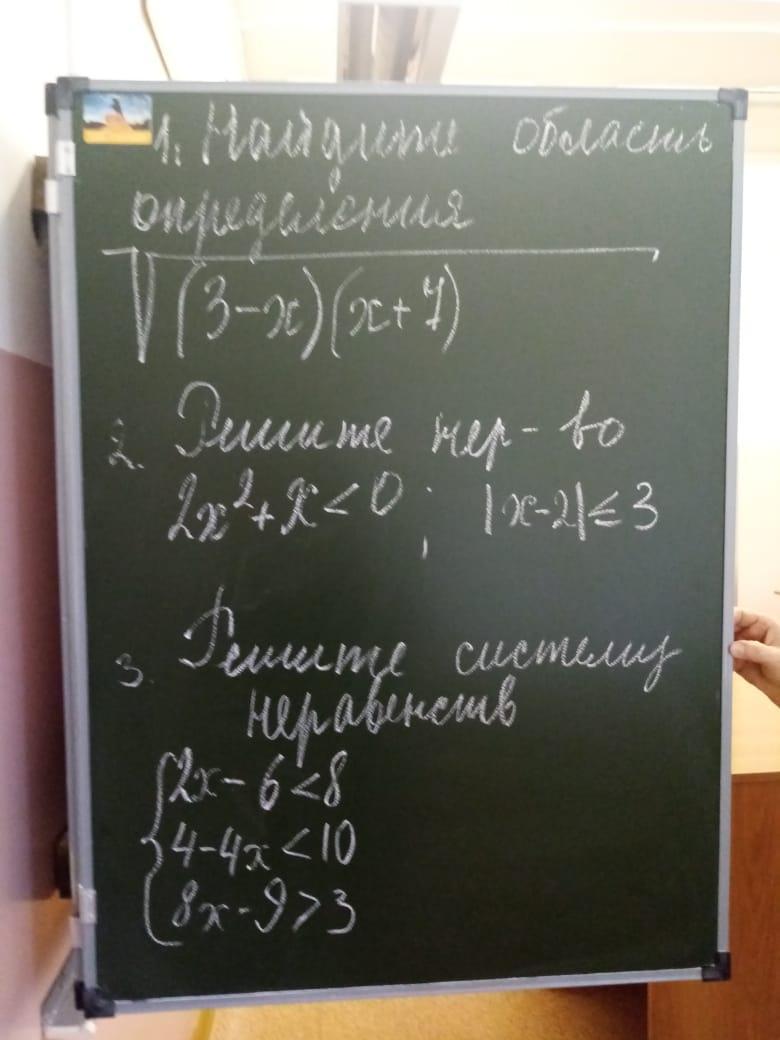 1. Найдите область
определения
√(3-x)(x+7)
2. Решите нер-во
2x²+x<0; |x-2|≤3
3. Решите систему
неравенств
{2x-6<8
4-4x<10
8x-9>3